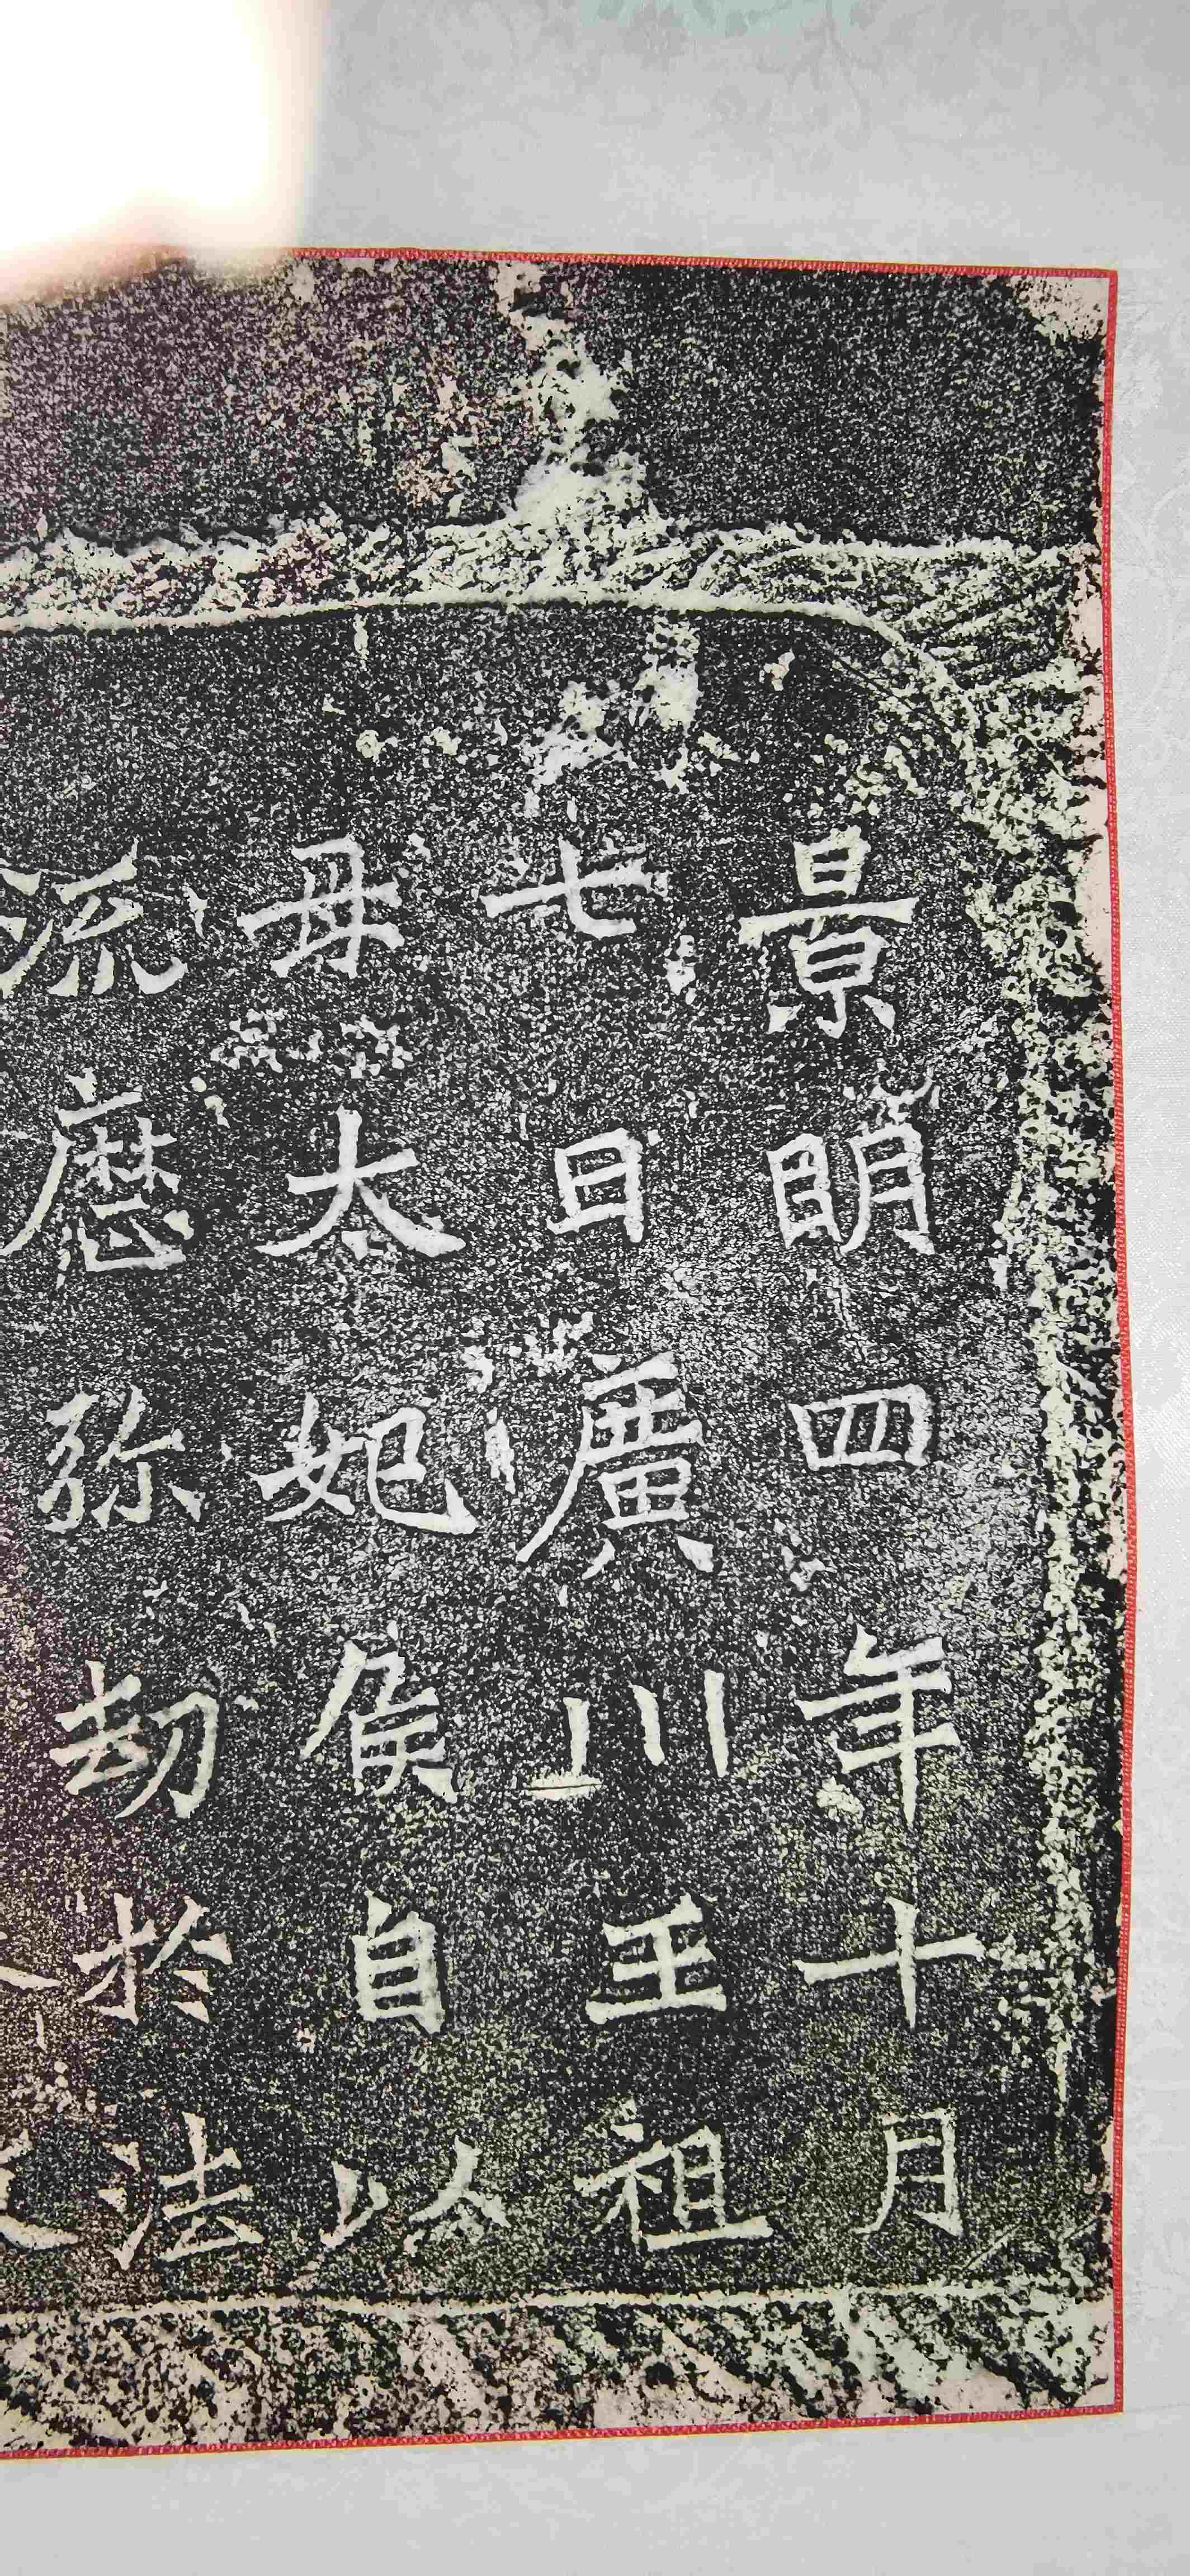 景明四年十月
七日廣川王祖
母太妃侯自以
流歷弥劫於法